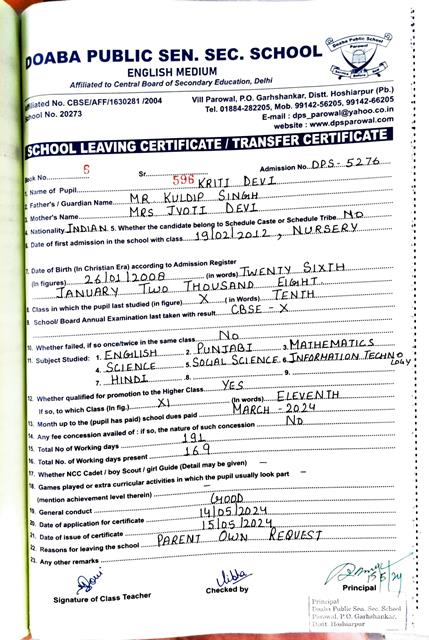 DOABA PUBLIC SEN. SEC. SCHOOL
ENGLISH MEDIUM
Affiliated to Central Board of Secondary Education, Delhi
Doaba Public School
Parowal
Affiliated No. CBSE/AFF/1630281 /2004
School No. 20273
Vill Parowal, P.O. Garhshankar, Distt. Hoshiarpur (Pb.)
Tel. 01884-282205, Mob. 99142-56205, 99142-66205
E-mail : dps_parowal@yahoo.co.in
website : www.dpsparowal.com
SCHOOL LEAVING CERTIFICATE / TRANSFER CERTIFICATE
Book No. Sr. 596 Admission No. DPS-5276
1. Name of Pupil KRITI DEVI
2. Father's / Guardian Name MR KULDIP SINGH
3. Mother's Name MRS JYOTI DEVI
4. Nationality INDIAN 5. Whether the candidate belong to Schedule Caste or Schedule Tribe NO
6. Date of first admission in the school with class 19/02/2012, NURSERY
7. Date of Birth (In Christian Era) according to Admission Register
(In figures) 26/01/2008 (in words) TWENTY SIXTH
JANUARY TWO THOUSAND EIGHT
8. Class in which the pupil last studied (in figure) X (in Words) TENTH
9. School/ Board Annual Examination last taken with result CBSE - X
10. Whether failed, if so once/twice in the same class NO
11. Subject Studied: 1. ENGLISH 2. PUNJABI 3. MATHEMATICS
4. SCIENCE 5. SOCIAL SCIENCE 6. INFORMATION TECHNO
LOGY
7. HINDI 8. 9.
12. Whether qualified for promotion to the Higher Class YES
If so, to which Class (In fig.) XI (In Words) ELEVENTH
13. Month up to the (pupil has paid) school dues paid MARCH-2024
14. Any fee concession availed of : if so, the nature of such concession NO
15. Total No of Working Days 191
16. Total No. of Working Days present 169
17. Whether NCC Cadet / boy Scout / girl Guide (Detail may be given) –
18. Games played or extra curricular activities in which the pupil usually look part –
(mention achievement level therein) –
19. General conduct GOOD
20. Date of application for certificate 14/05/2024
21. Date of issue of certificate 15/05/2024
22. Reasons for leaving the school PARENT OWN REQUEST
23. Any other remarks
Signature of Class Teacher
Checked by
15/5/24
Principal
Principal
Doaba Public Sen. Sec. School
Parowal, P.O. Garhshankar,
Distt. Hoshiarpur